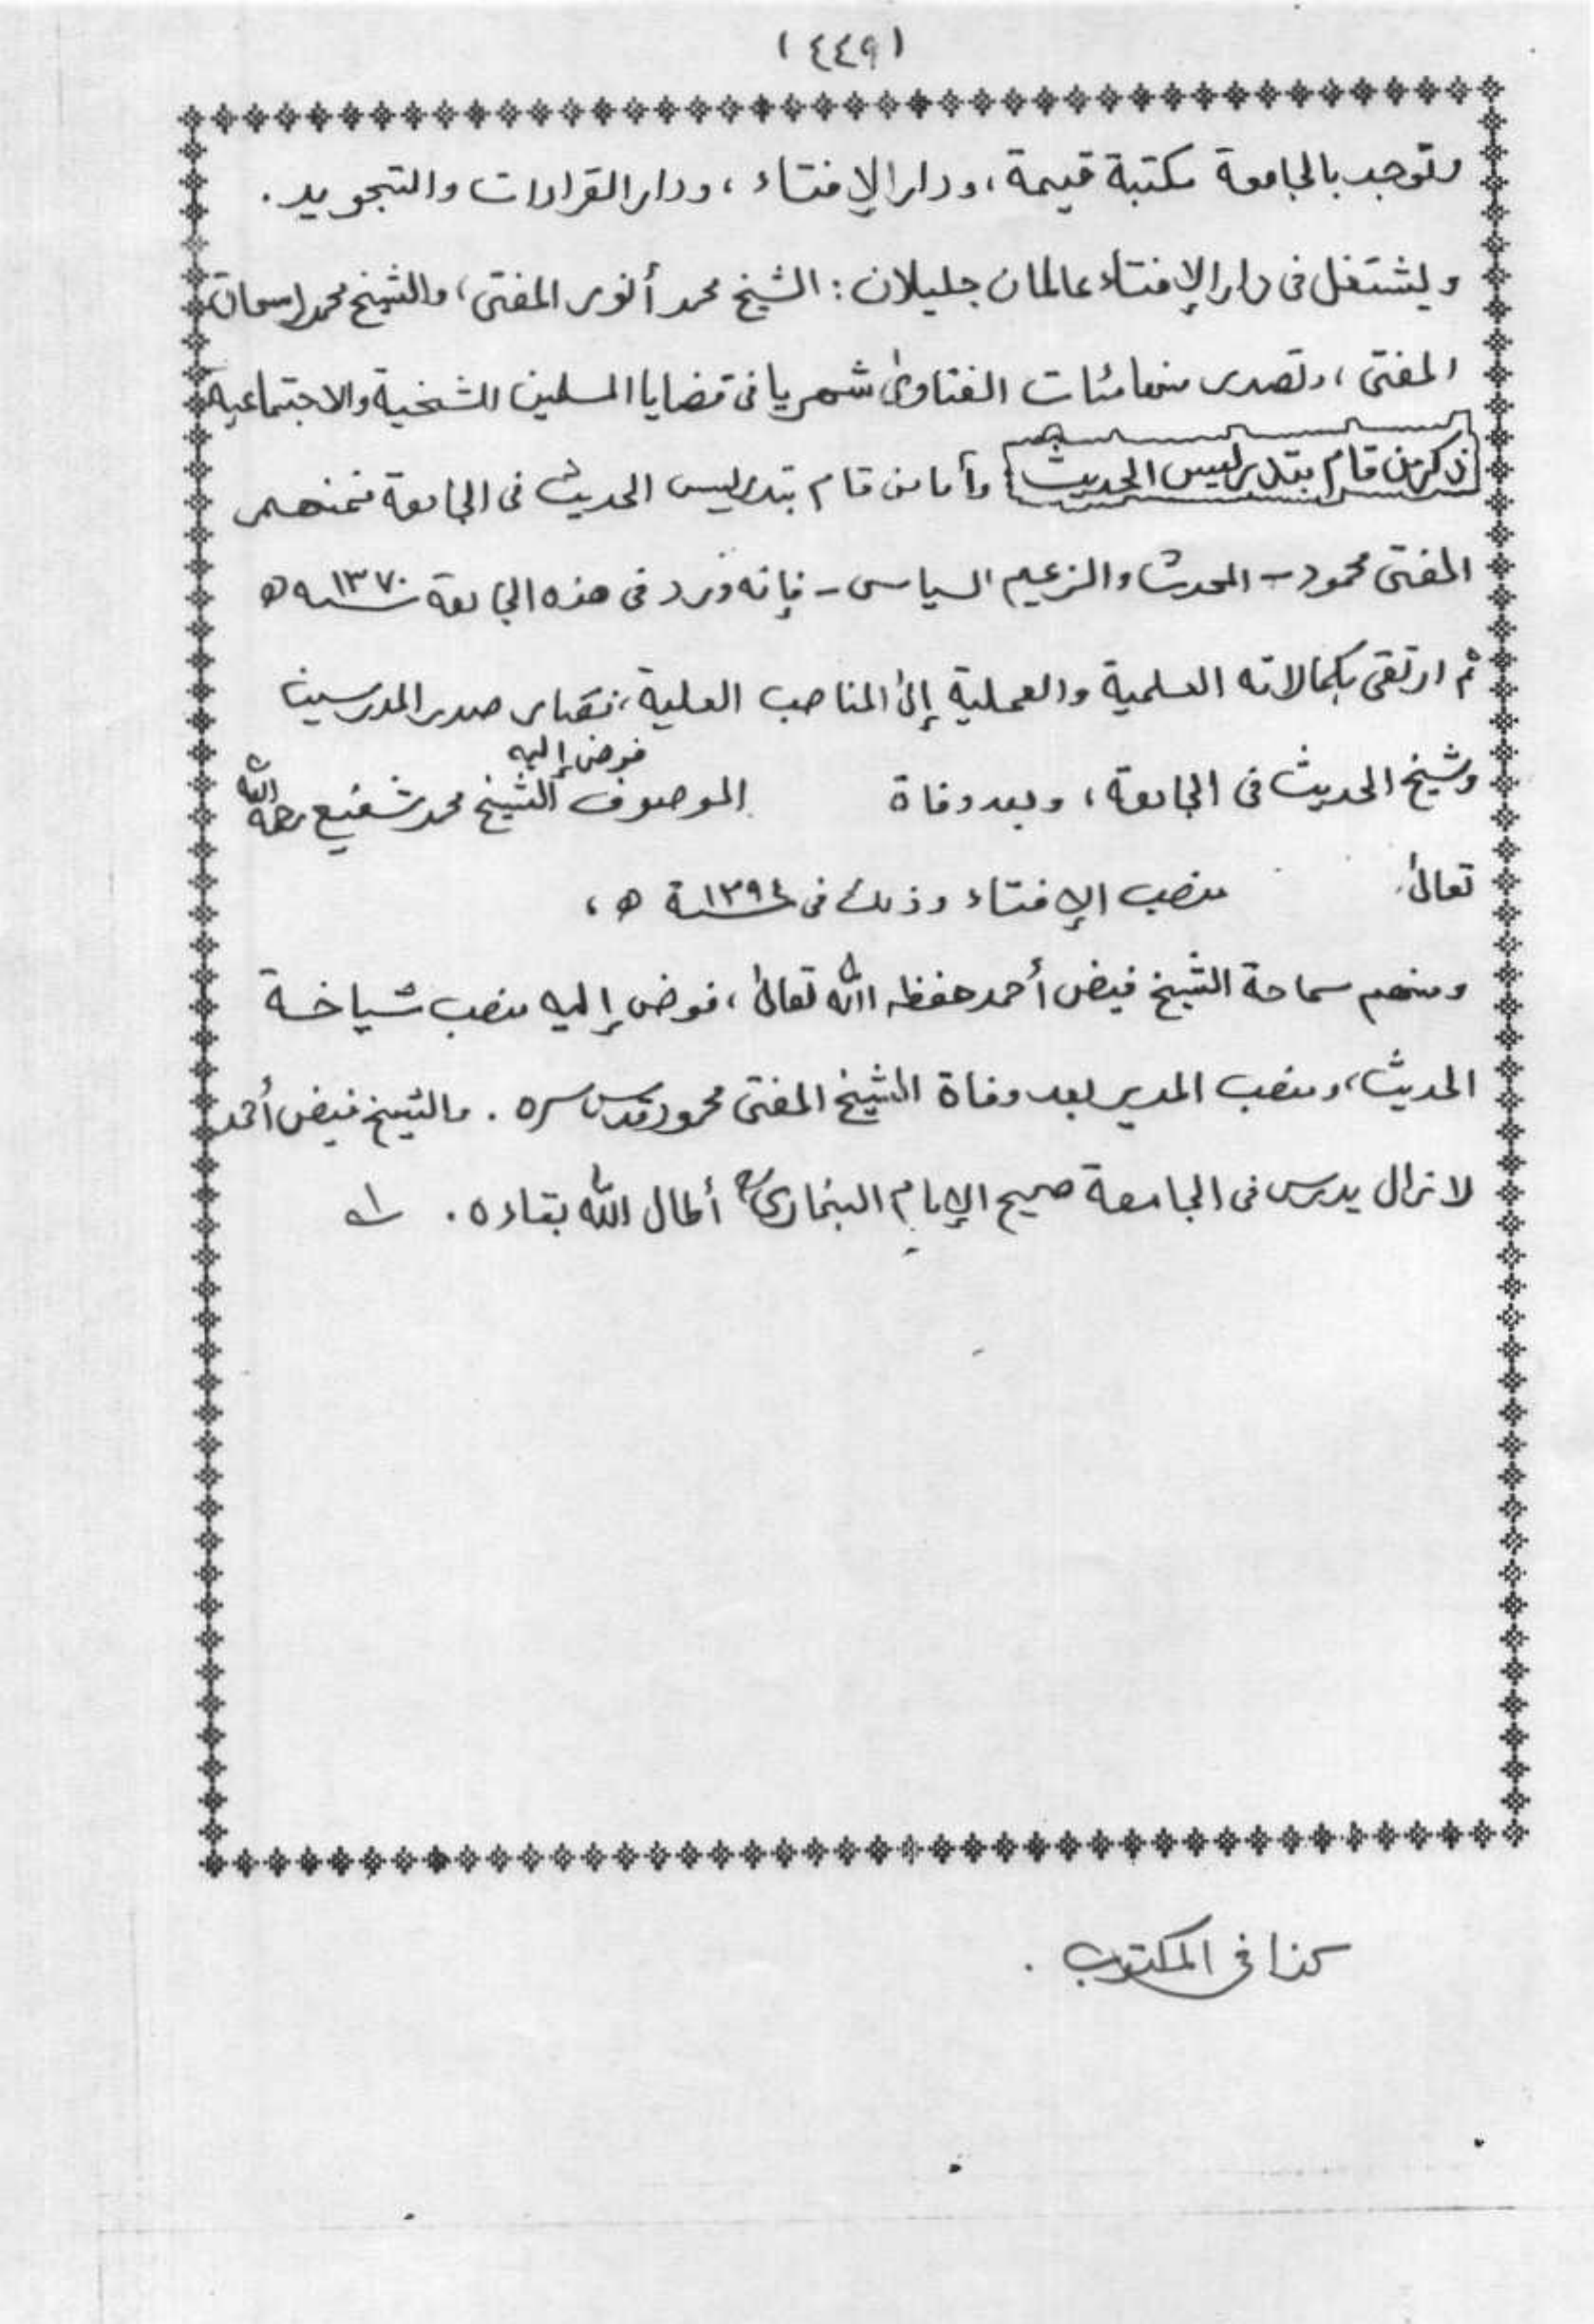 (٤٤٩)
وتوجد بالجامعة مكتبة قيمة، ودار الإفتاء، ودار القراءات والتجويد.
ويشتغل فى دار الإفتاء عالمان جليلان: الشيخ محمد أنور المفتى، والشيخ محمد إسحاق
المفتى، وتصدر منها مئات الفتاوىٰ شهريا فى قضايا المسلمين الشخصية والاجتماعية
ذكر من قام بتدريس الحديث وأما من قام بتدريس الحديث فى الجامعة فمنهم
المفتى محمود - المحدث والزعيم السياسى - فإنه ورد فى هذه الجامعة سنه ١٣٧٠ ه
ثم ارتقى بكمالاته العلمية والعملية إلىٰ المناصب العلية، فصار صدر المدرسين
وشيخ الحديث فى الجامعة، وبعد وفاة الموصوف الشيخ محمد شفيع رحمه الله
فوض إليه
تعالىٰ منصب الإفتاء وذلك فى سنة ١٣٩٤ ه،
ومنهم سماحة الشيخ فيض أحمد حفظه الله تعالىٰ، فوض إليه منصب شياخة
الحديث، ومنصب المدير بعد وفاة الشيخ المفتى محمود قدس سره. والشيخ فيض أحمد
لا زال يدرس فى الجامعة صحيح الإمام البخارى أطال الله بقاءه. اه
كذا فى المكتوب.